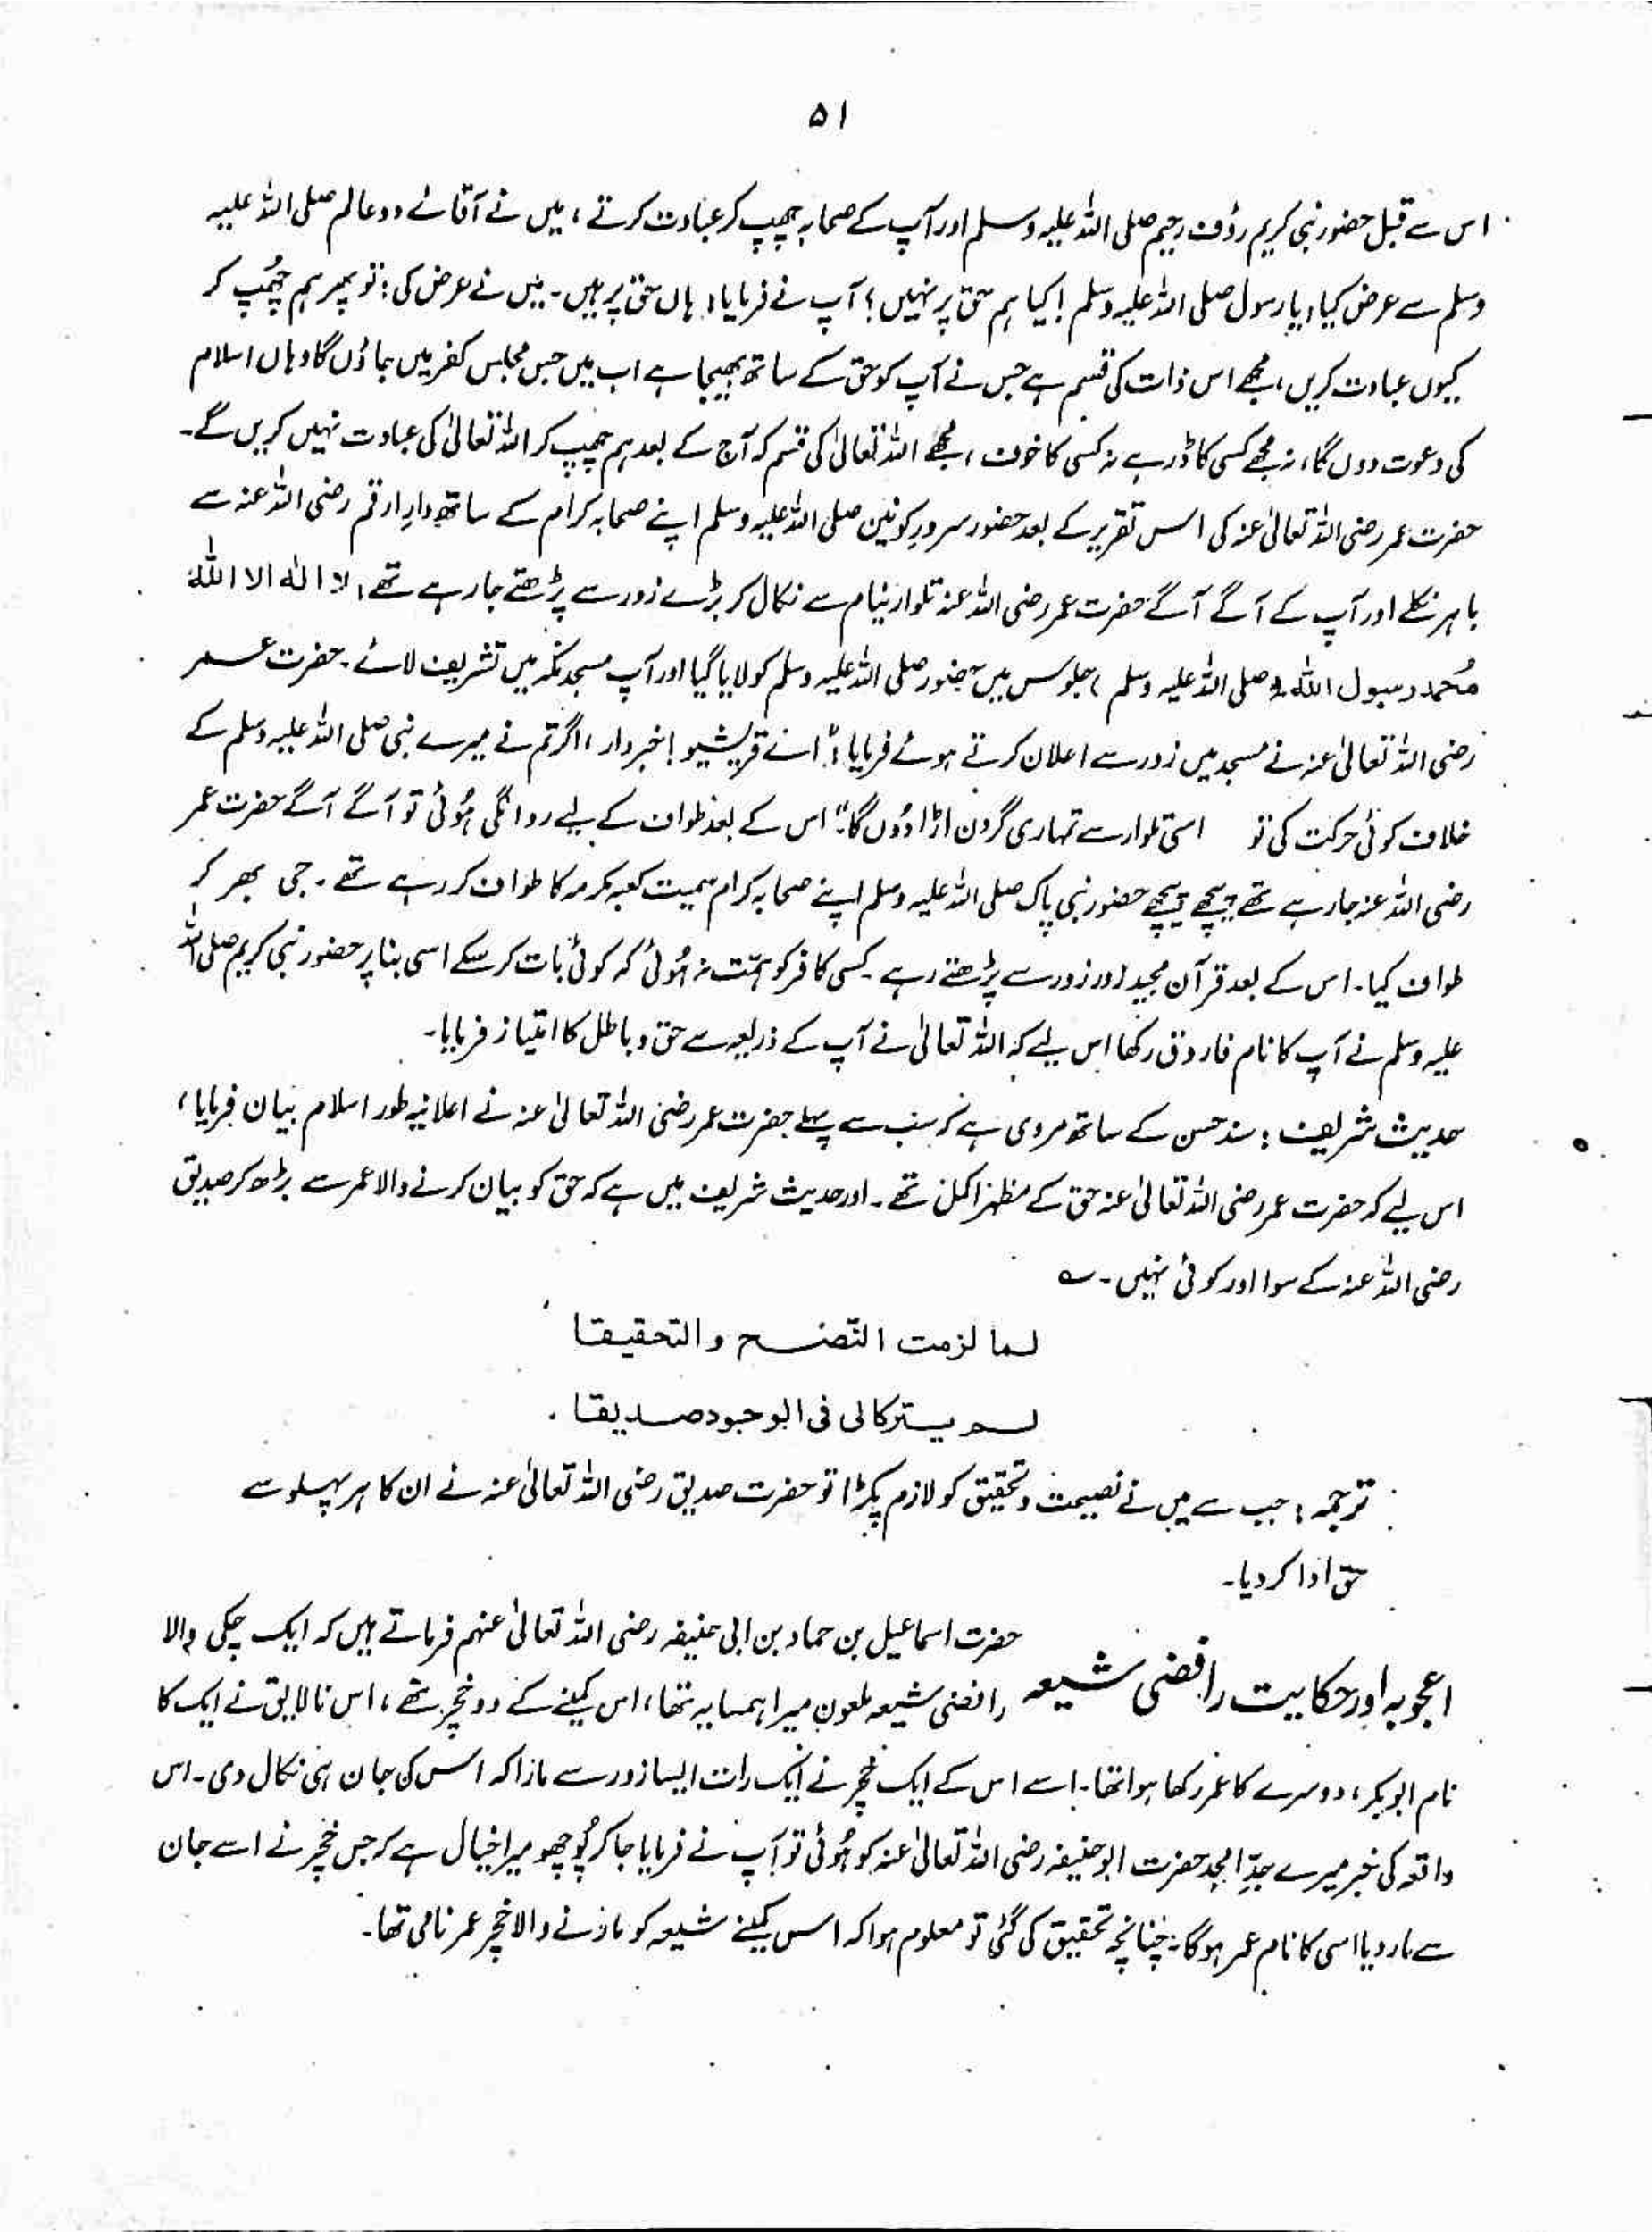 ۵۱
اس سے قبل حضور نبی کریم رؤف رحیم صلی اللہ علیہ وسلم اور آپ کے صحابہ چھپ کر عبادت کرتے ، میں نے آقائے دو عالم صلی اللہ علیہ
وسلم سے عرض کیا، یا رسول صلی اللہ علیہ وسلم ! کیا ہم حق پر نہیں ؟ آپ نے فرمایا، ہاں حق پر ہیں۔ میں نے عرض کی : تو پھر ہم چُھپ کر
کیوں عبادت کریں ، مجھے اس ذات کی قسم ہے جس نے آپ کو حق کے ساتھ بھیجا ہے اب میں جس مجلس کفر میں جاؤں گا وہاں اسلام
کی دعوت دوں گا، نہ مجھے کسی کا ڈر ہے نہ کسی کا خوف ، مجھے اللہ تعالیٰ کی قسم کہ آج کے بعد ہم چھپ کر اللہ تعالیٰ کی عبادت نہیں کریں گے۔
حضرت عمر رضی اللہ تعالیٰ عنہ کی اس تقریر کے بعد حضور سرورِ کونین صلی اللہ علیہ وسلم اپنے صحابہ کرام کے ساتھ دارِ ارقم رضی اللہ عنہ سے
باہر نکلے اور آپ کے آگے آگے حضرت عمر رضی اللہ عنہ تلوار نیام سے نکال کر بڑے زور سے پڑھتے جا رہے تھے، لا الٰہ الا اللہ
مُحمد رسول اللہ (صلی اللہ علیہ وسلم) جلوس میں حضور صلی اللہ علیہ وسلم کو لایا گیا اور آپ مسجد مکہ میں تشریف لائے۔ حضرت عمر
رضی اللہ تعالیٰ عنہ نے مسجد میں زور سے اعلان کرتے ہوئے فرمایا : "اے قریشیو ! خبردار ، اگر تم نے میرے نبی صلی اللہ علیہ وسلم کے
خلاف کوئی حرکت کی تو اسی تلوار سے تمہاری گردن اڑا دُوں گا۔" اس کے بعد طواف کے لیے روانگی ہُوئی تو آگے آگے حضرت عمر
رضی اللہ عنہ جا رہے تھے پیچھے پیچھے حضور نبی پاک صلی اللہ علیہ وسلم اپنے صحابہ کرام سمیت کعبہ مکرمہ کا طواف کر رہے تھے ۔ جی بھر کر
طواف کیا۔ اس کے بعد قرآن مجید اور زور سے پڑھتے رہے ۔ کسی کافر کو ہمّت نہ ہُوئی کہ کوئی بات کر سکے اسی بنا پر حضور نبی کریم صلی اللہ
علیہ وسلم نے آپ کا نام فاروق رکھا اس لیے کہ اللہ تعالیٰ نے آپ کے ذریعہ سے حق و باطل کا امتیاز فرمایا۔
حدیث شریف : سند حسن کے ساتھ مروی ہے کہ سب سے پہلے حضرت عمر رضی اللہ تعالیٰ عنہ نے اعلانیہ طور اسلام بیان فرمایا ،
اس لیے کہ حضرت عمر رضی اللہ تعالیٰ عنہ حق کے مظہر اکمل تھے ۔ اور حدیث شریف میں ہے کہ حق کو بیان کرنے والا عمر سے بڑھ کر صدیق
رضی اللہ عنہ کے سوا اور کوئی نہیں ۔ ؎
لما لزمت النصح والتحقیقا
لم یترکا لی فی الوجود صدیقا .
ترجمہ : جب سے میں نے نصیحت و تحقیق کو لازم پکڑا تو حضرت صدیق رضی اللہ تعالیٰ عنہ نے ان کا ہر پہلو سے
حق ادا کر دیا۔
اعجوبہ اور حکایت رافضی شیعہ حضرت اسماعیل بن حماد بن ابی حنیفہ رضی اللہ تعالیٰ عنہم فرماتے ہیں کہ ایک چکی والا
رافضی شیعہ ملعون میرا ہمسایہ تھا ، اس کمینے کے دو خچر تھے ، اس نالایق نے ایک کا
نام ابوبکر ، دوسرے کا عمر رکھا ہوا تھا۔ اسے اس کے ایک خچر نے ایک رات ایسا زور سے مارا کہ اس کی جان ہی نکال دی ۔ اس
واقعہ کی خبر میرے جدِّ امجد حضرت ابو حنیفہ رضی اللہ تعالیٰ عنہ کو ہُوئی تو آپ نے فرمایا جا کر پُوچھو میرا خیال ہے کہ جس خچر نے اسے جان
سے مار دیا اسی کا نام عمر ہو گا۔ چنانچہ تحقیق کی گئی تو معلوم ہوا کہ اس کمینے شیعہ کو مارنے والا خچر عمر نامی تھا۔